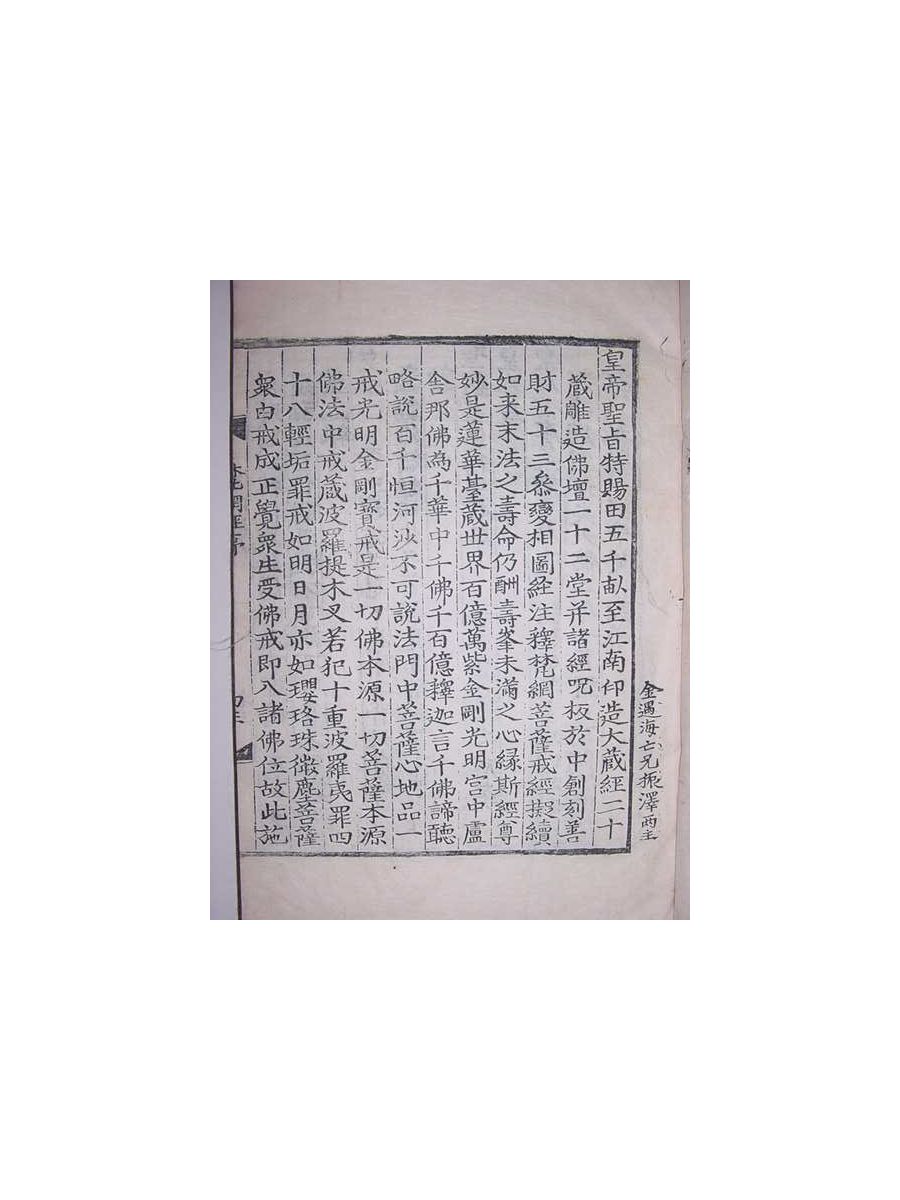 金遇海亡兄振澤兩主
皇帝聖旨特賜田五千畒至江南印造大藏經二十
藏雕造佛壇一十二堂并諸經呪板於中創刻善
財五十三叅變相圖経注釋梵網菩薩戒經擬續
如来末法之壽命仍酬壽峯未滿之心緣斯經尊
妙是蓮華䑓蔵世界百億萬紫金剛光明宫中盧
舍那佛為千華中千佛千百億釋迦言千佛諦聽
略說百千恒河沙不可說法門中菩薩心地品一
戒光明金剛寳戒是一切佛本源一切菩薩本源
佛法中戒蔵波羅提木叉若犯十重波羅夷罪四
十八輕垢罪戒如明日月亦如瓔珞珠微塵菩薩
衆由戒成正覺衆生受佛戒即入諸佛位故此施
梵網經序